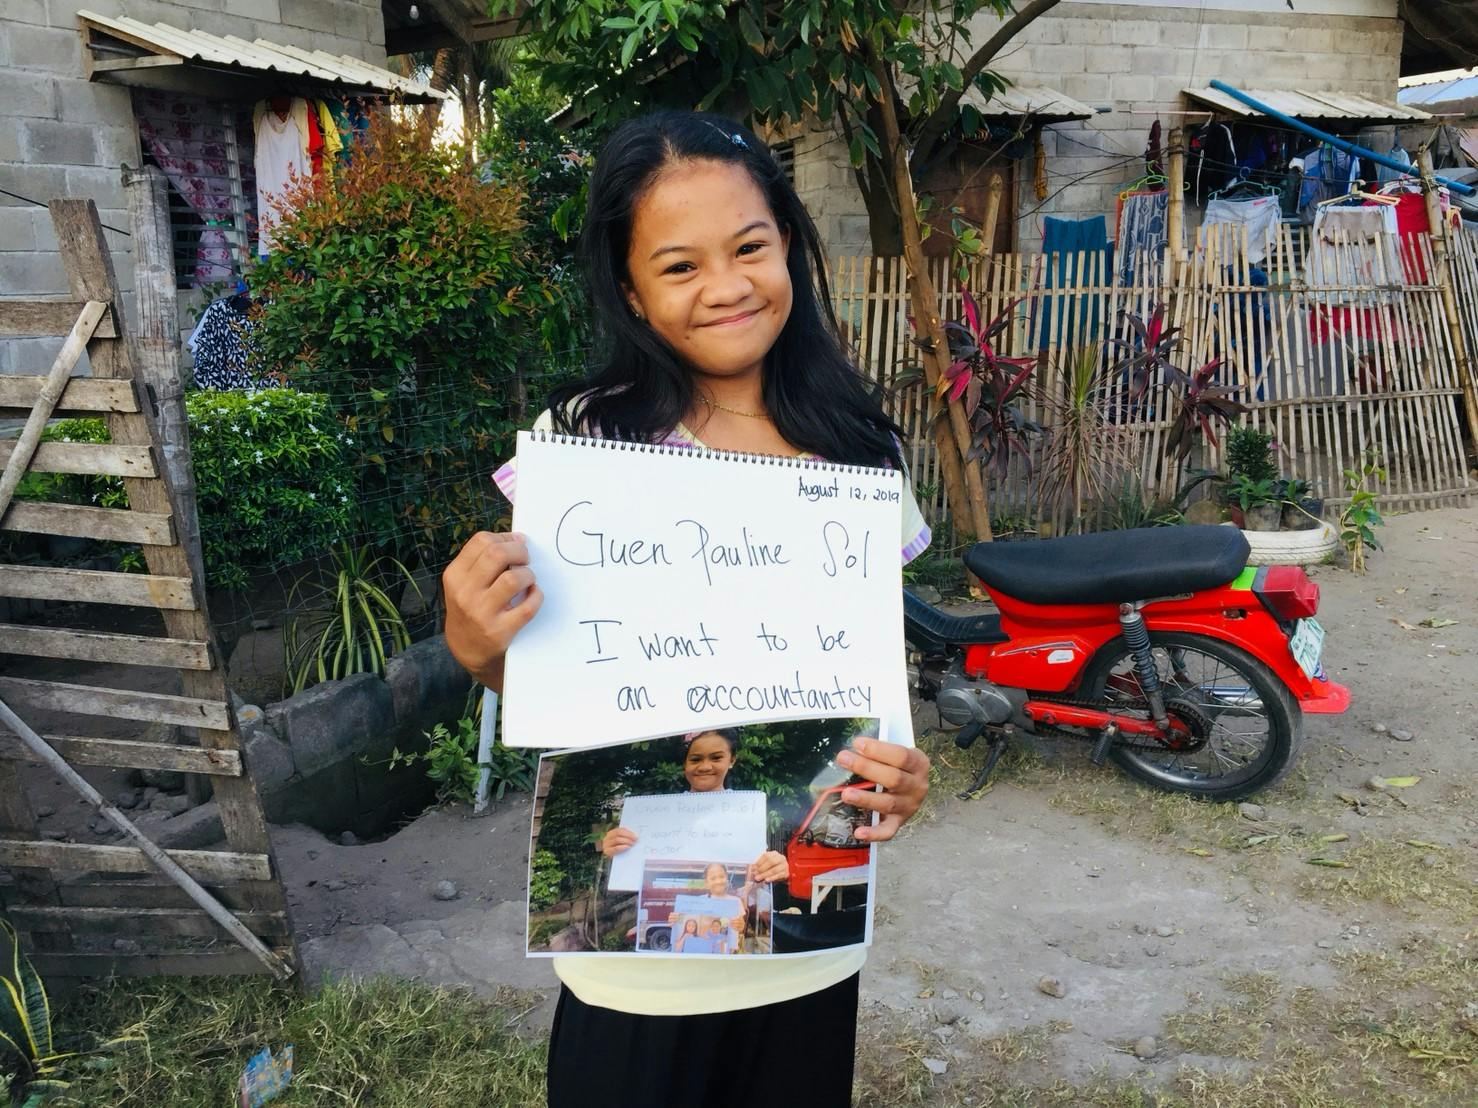 August 12, 2019
Guen Pauline Sol
I want to be
an accountantcy
Guen Pauline D. Sol
I want to be a
Doctor